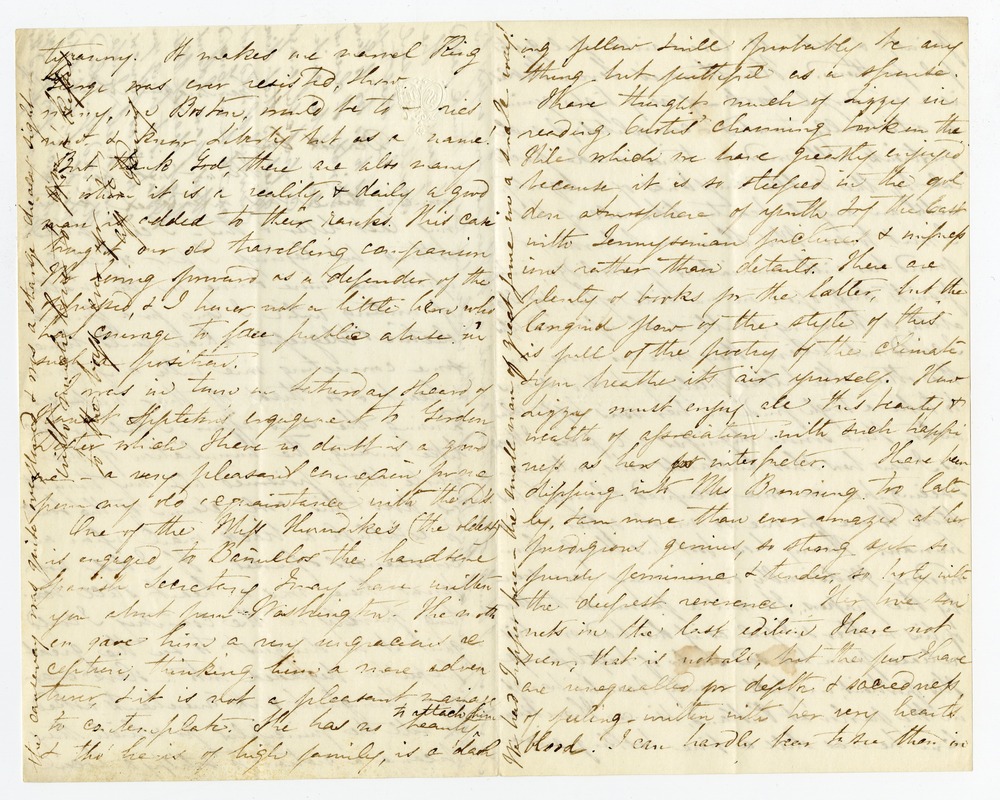 tyranny. It makes me marvel King
George was ever resisted, & how
many, in Boston, would be to
& know Liberty but as a name.
But thank God, there are also many
to whom it is a reality, & daily a good
man is added to their ranks. This case
brought our old travelling companion
coming forward as a defender of the
oppressed, & I honor not a little him who
has courage to face public abuse in
such a position.
I was in town on Saturday & heard of
engagement to Gordon
which I have no doubt is a good
one - a very pleasant connexion
from any old acquaintance with the
One of the Miss Thorndike's (the oldest)
is engaged to Bañuelos the handsome
Spanish secretary I may have written
you about from Washington. The moth
er gave him a very ungracious re
ception, thinking him a mere adven
turer, & it is not a pleasant marriage
to contemplate. She has no beauty to attach him
& tho' he is of high family, is a dash
ing fellow & will probably be any
thing but faithful as a spouse.
I have thought much of Lizzy in
reading Curtis' charming book on the
Nile which we have greatly enjoyed
because it is so steeped in the gol
den atmosphere of youth & of the East
with Tennysonian pictures & impress
ions rather than details. There are
plenty of books for the latter, but the
languid flow of the style of this
is full of the poetry of the climate
& you breathe its air yourself. How
Lizzy must enjoy all this beauty &
wealth of association with such happi
ness as her interpreter. I have been
dipping into Mrs Browning too late
ly, & am more than ever amazed at her
prodigious genius, so strong yet so
purely feminine & tender, so holy with
the deepest reverence. Her love son
nets in the last edition I have not
seen, that is not all, but the few I have
are unequalled for depth & sacredness
of feeling - written with her very heart's
blood. I can hardly bear to see them in
the causeway was quite overflowed & was a strange dreary sight.
great fame in a small